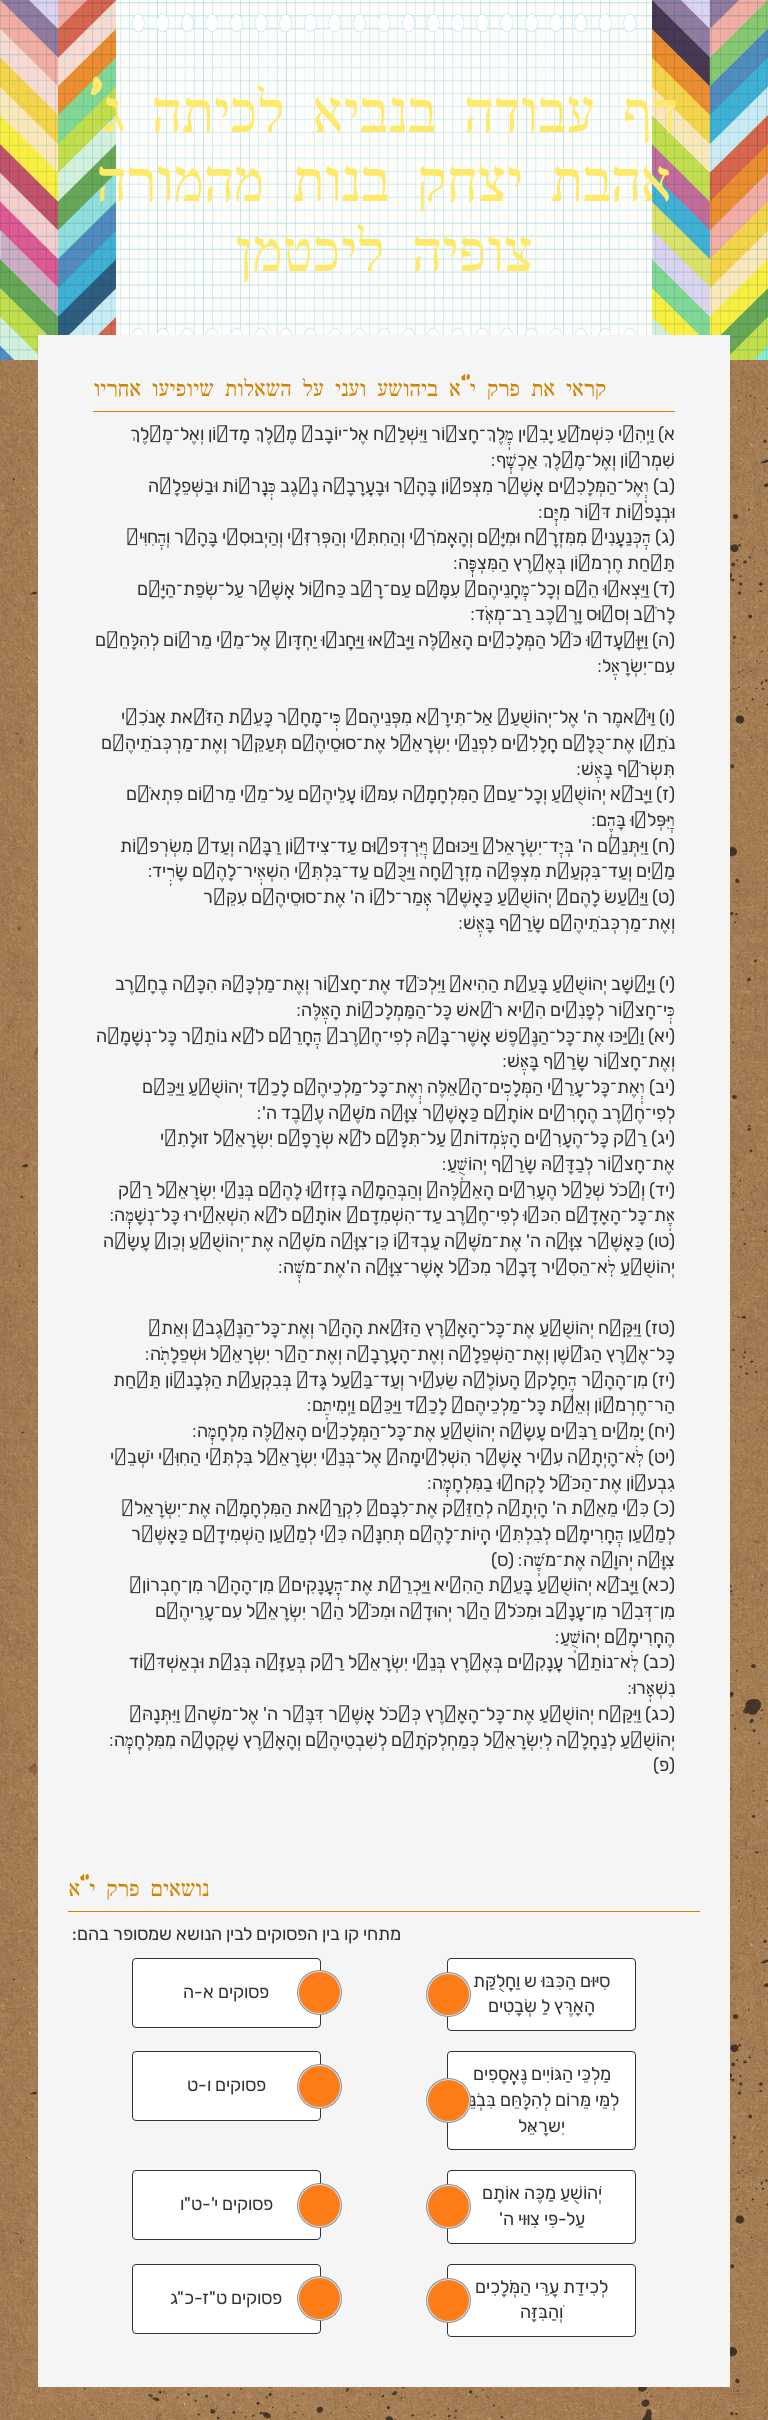 דף עבודה בנביא לכיתה ג'
אהבת יצחק בנות מהמורה
צופיה ליכטמן
קראי את פרק י"א ביהושע ועני על השאלות שיופיעו אחריו
א) וַיְהִי כִּשְׁמֹעַ יָבִין מֶלֶךְ־חָצוֹר וַיִּשְׁלַח אֶל־יוֹבָב מֶלֶךְ מָדוֹן וְאֶל־מֶלֶךְ
שִׁמְרוֹן וְאֶל־מֶלֶךְ אַכְשָׁף:
(ב) וְאֶל־הַמְּלָכִים אֲשֶׁר מִצְּפוֹן בָּהָר וּבָעֲרָבָה נֶגֶב כִּנֲרוֹת וּבַשְּׁפֵלָה
וּבְנָפוֹת דּוֹר מִיָּם:
(ג) הַכְּנַעֲנִי מִמִּזְרָח וּמִיָּם וְהָאֱמֹרִי וְהַחִתִּי וְהַפְּרִזִּי וְהַיְבוּסִי בָּהָר וְהַחִוִּי
תַּחַת חֶרְמוֹן בְּאֶרֶץ הַמִּצְפָּה:
(ד) וַיֵּצְאוּ הֵם וְכָל־מַחֲנֵיהֶם עִמָּם עַם־רָב כַּחוֹל אֲשֶׁר עַל־שְׂפַת־הַיָּם
לָרֹב וְסוּס וָרֶכֶב רַב־מְאֹד:
(ה) וַיִּוָּעֲדוּ כֹּל הַמְּלָכִים הָאֵלֶּה וַיָּבֹאוּ וַיַּחֲנוּ יַחְדָּו אֶל־מֵי מֵרוֹם לְהִלָּחֵם
עִם־יִשְׂרָאֵל:
(ו) וַיֹּאמֶר ה' אֶל־יְהוֹשֻׁעַ אַל־תִּירָא מִפְּנֵיהֶם כִּי־מָחָר כָּעֵת הַזֹּאת אָנֹכִי
נֹתֵן אֶת־כֻּלָּם חֲלָלִים לִפְנֵי יִשְׂרָאֵל אֶת־סוּסֵיהֶם תְּעַקֵּר וְאֶת־מַרְכְּבֹתֵיהֶם
תִּשְׂרֹף בָּאֵשׁ:
(ז) וַיָּבֹא יְהוֹשֻׁעַ וְכָל־עַם הַמִּלְחָמָה עִמּוֹ עֲלֵיהֶם עַל־מֵי מֵרוֹם פִּתְאֹם
וַיִּפְּלוּ בָּהֶם:
(ח) וַיִּתְּנֵם ה' בְּיַד־יִשְׂרָאֵל וַיַּכּוּם וַיִּרְדְּפוּם עַד־צִידוֹן רַבָּה וְעַד מִשְׂרְפוֹת
מַיִם וְעַד־בִּקְעַת מִצְפֶּה מִזְרָחָה וַיַּכֻּם עַד־בִּלְתִּי הִשְׁאִיר־לָהֶם שָׂרִיד:
(ט) וַיַּעַשׂ לָהֶם יְהוֹשֻׁעַ כַּאֲשֶׁר אָמַר־לוֹ ה' אֶת־סוּסֵיהֶם עִקֵּר
וְאֶת־מַרְכְּבֹתֵיהֶם שָׂרַף בָּאֵשׁ:
(י) וַיָּשָׁב יְהוֹשֻׁעַ בָּעֵת הַהִיא וַיִּלְכֹּד אֶת־חָצוֹר וְאֶת־מַלְכָּהּ הִכָּה בֶחָרֶב
כִּי־חָצוֹר לְפָנִים הִיא רֹאשׁ כָּל־הַמַּמְלָכוֹת הָאֵלֶּה:
(יא) וַיַּכּוּ אֶת־כָּל־הַנֶּפֶשׁ אֲשֶׁר־בָּהּ לְפִי־חֶרֶב הַחֲרֵם לֹא נוֹתַר כָּל־נְשָׁמָה
וְאֶת־חָצוֹר שָׂרַף בָּאֵשׁ:
(יב) וְאֶת־כָּל־עָרֵי הַמְּלָכִים־הָאֵלֶּה וְאֶת־כָּל־מַלְכֵיהֶם לָכַד יְהוֹשֻׁעַ וַיַּכֵּם
לְפִי־חֶרֶב הֶחֱרִים אוֹתָם כַּאֲשֶׁר צִוָּה מֹשֶׁה עֶבֶד ה':
(יג) רַק כָּל־הֶעָרִים הָעֹמְדוֹת עַל־תִּלָּם לֹא שְׂרָפָם יִשְׂרָאֵל זוּלָתִי
אֶת־חָצוֹר לְבַדָּהּ שָׂרַף יְהוֹשֻׁעַ:
(יד) וְכֹל שְׁלַל הֶעָרִים הָאֵלֶּה וְהַבְּהֵמָה בָּזְזוּ לָהֶם בְּנֵי יִשְׂרָאֵל רַק
אֶת־כָּל־הָאָדָם הִכּוּ לְפִי־חֶרֶב עַד־הִשְׁמִדָם אוֹתָם לֹא הִשְׁאִירוּ כָּל־נְשָׁמָה:
(טו) כַּאֲשֶׁר צִוָּה ה' אֶת־מֹשֶׁה עַבְדּוֹ כֵּן־צִוָּה מֹשֶׁה אֶת־יְהוֹשֻׁעַ וְכֵן עָשָׂה
יְהוֹשֻׁעַ לֹא־הֵסִיר דָּבָר מִכֹּל אֲשֶׁר־צִוָּה ה'אֶת־מֹשֶׁה:
(טז) וַיִּקַּח יְהוֹשֻׁעַ אֶת־כָּל־הָאָרֶץ הַזֹּאת הָהָר וְאֶת־כָּל־הַנֶּגֶב וְאֵת
כָּל־אֶרֶץ הַגֹּשֶׁן וְאֶת־הַשְּׁפֵלָה וְאֶת־הָעֲרָבָה וְאֶת־הַר יִשְׂרָאֵל וּשְׁפֵלָתֹה:
(יז) מִן־הָהָר הֶחָלָק הָעוֹלֶה שֵׂעִיר וְעַד־בַּעַל גָּד בְּבִקְעַת הַלְּבָנוֹן תַּחַת
הַר־חֶרְמוֹן וְאֵת כָּל־מַלְכֵיהֶם לָכַד וַיַּכֵּם וַיְמִיתֵם:
(יח) יָמִים רַבִּים עָשָׂה יְהוֹשֻׁעַ אֶת־כָּל־הַמְּלָכִים הָאֵלֶּה מִלְחָמָה:
(יט) לֹא־הָיְתָה עִיר אֲשֶׁר הִשְׁלִימָה אֶל־בְּנֵי יִשְׂרָאֵל בִּלְתִּי הַחִוִּי יֹשְׁבֵי
גִבְעוֹן אֶת־הַכֹּל לָקְחוּ בַמִּלְחָמָה:
(כ) כִּי מֵאֵת ה' הָיְתָה לְחַזֵּק אֶת־לִבָּם לִקְרַאת הַמִּלְחָמָה אֶת־יִשְׂרָאֵל
לְמַעַן הַחֲרִימָם לְבִלְתִּי הֱיוֹת־לָהֶם תְּחִנָּה כִּי לְמַעַן הַשְׁמִידָם כַּאֲשֶׁר
צִוָּה יְהוָה אֶת־מֹשֶׁה: (ס)
(כא) וַיָּבֹא יְהוֹשֻׁעַ בָּעֵת הַהִיא וַיַּכְרֵת אֶת־הָעֲנָקִים מִן־הָהָר מִן־חֶבְרוֹן
מִן־דְּבִר מִן־עֲנָב וּמִכֹּל הַר יְהוּדָה וּמִכֹּל הַר יִשְׂרָאֵל עִם־עָרֵיהֶם
הֶחֱרִימָם יְהוֹשֻׁעַ:
(כב) לֹא־נוֹתַר עֲנָקִים בְּאֶרֶץ בְּנֵי יִשְׂרָאֵל רַק בְּעַזָּה בְּגַת וּבְאַשְׁדּוֹד
נִשְׁאָרוּ:
(כג) וַיִּקַּח יְהוֹשֻׁעַ אֶת־כָּל־הָאָרֶץ כְּכֹל אֲשֶׁר דִּבֶּר ה' אֶל־מֹשֶׁה וַיִּתְּנָהּ
יְהוֹשֻׁעַ לְנַחֲלָה לְיִשְׂרָאֵל כְּמַחְלְקֹתָם לְשִׁבְטֵיהֶם וְהָאָרֶץ שָׁקְטָה מִמִּלְחָמָה:
(פ)
נושאים פרק י"א
מתחי קו בין הפסוקים לבין הנושא שמסופר בהם:
סִיּוּם הַכִּבּוּ ש וַחֲלֻקַּת
הָאָרֶץ לַ שְּׁבָטִים
פסוקים א-ה
מַלְכֵּי הַגּוֹיִים נֶאֱסָפִים
לְמֵי מֵרוֹם לְהִלָּחֵם בִּבְנֵי
יִשרָאֵל
פסוקים ו-ט
יְהוֹשֻׁעַ מַכֶּה אוֹתָם
עַל-פִּי צִוּוּי ה'
פסוקים י'-ט"ו
לְכִידַת עָרֵי הַמְּלָכִים
וְהַבִּזָּה
פסוקים ט"ז-כ"ג